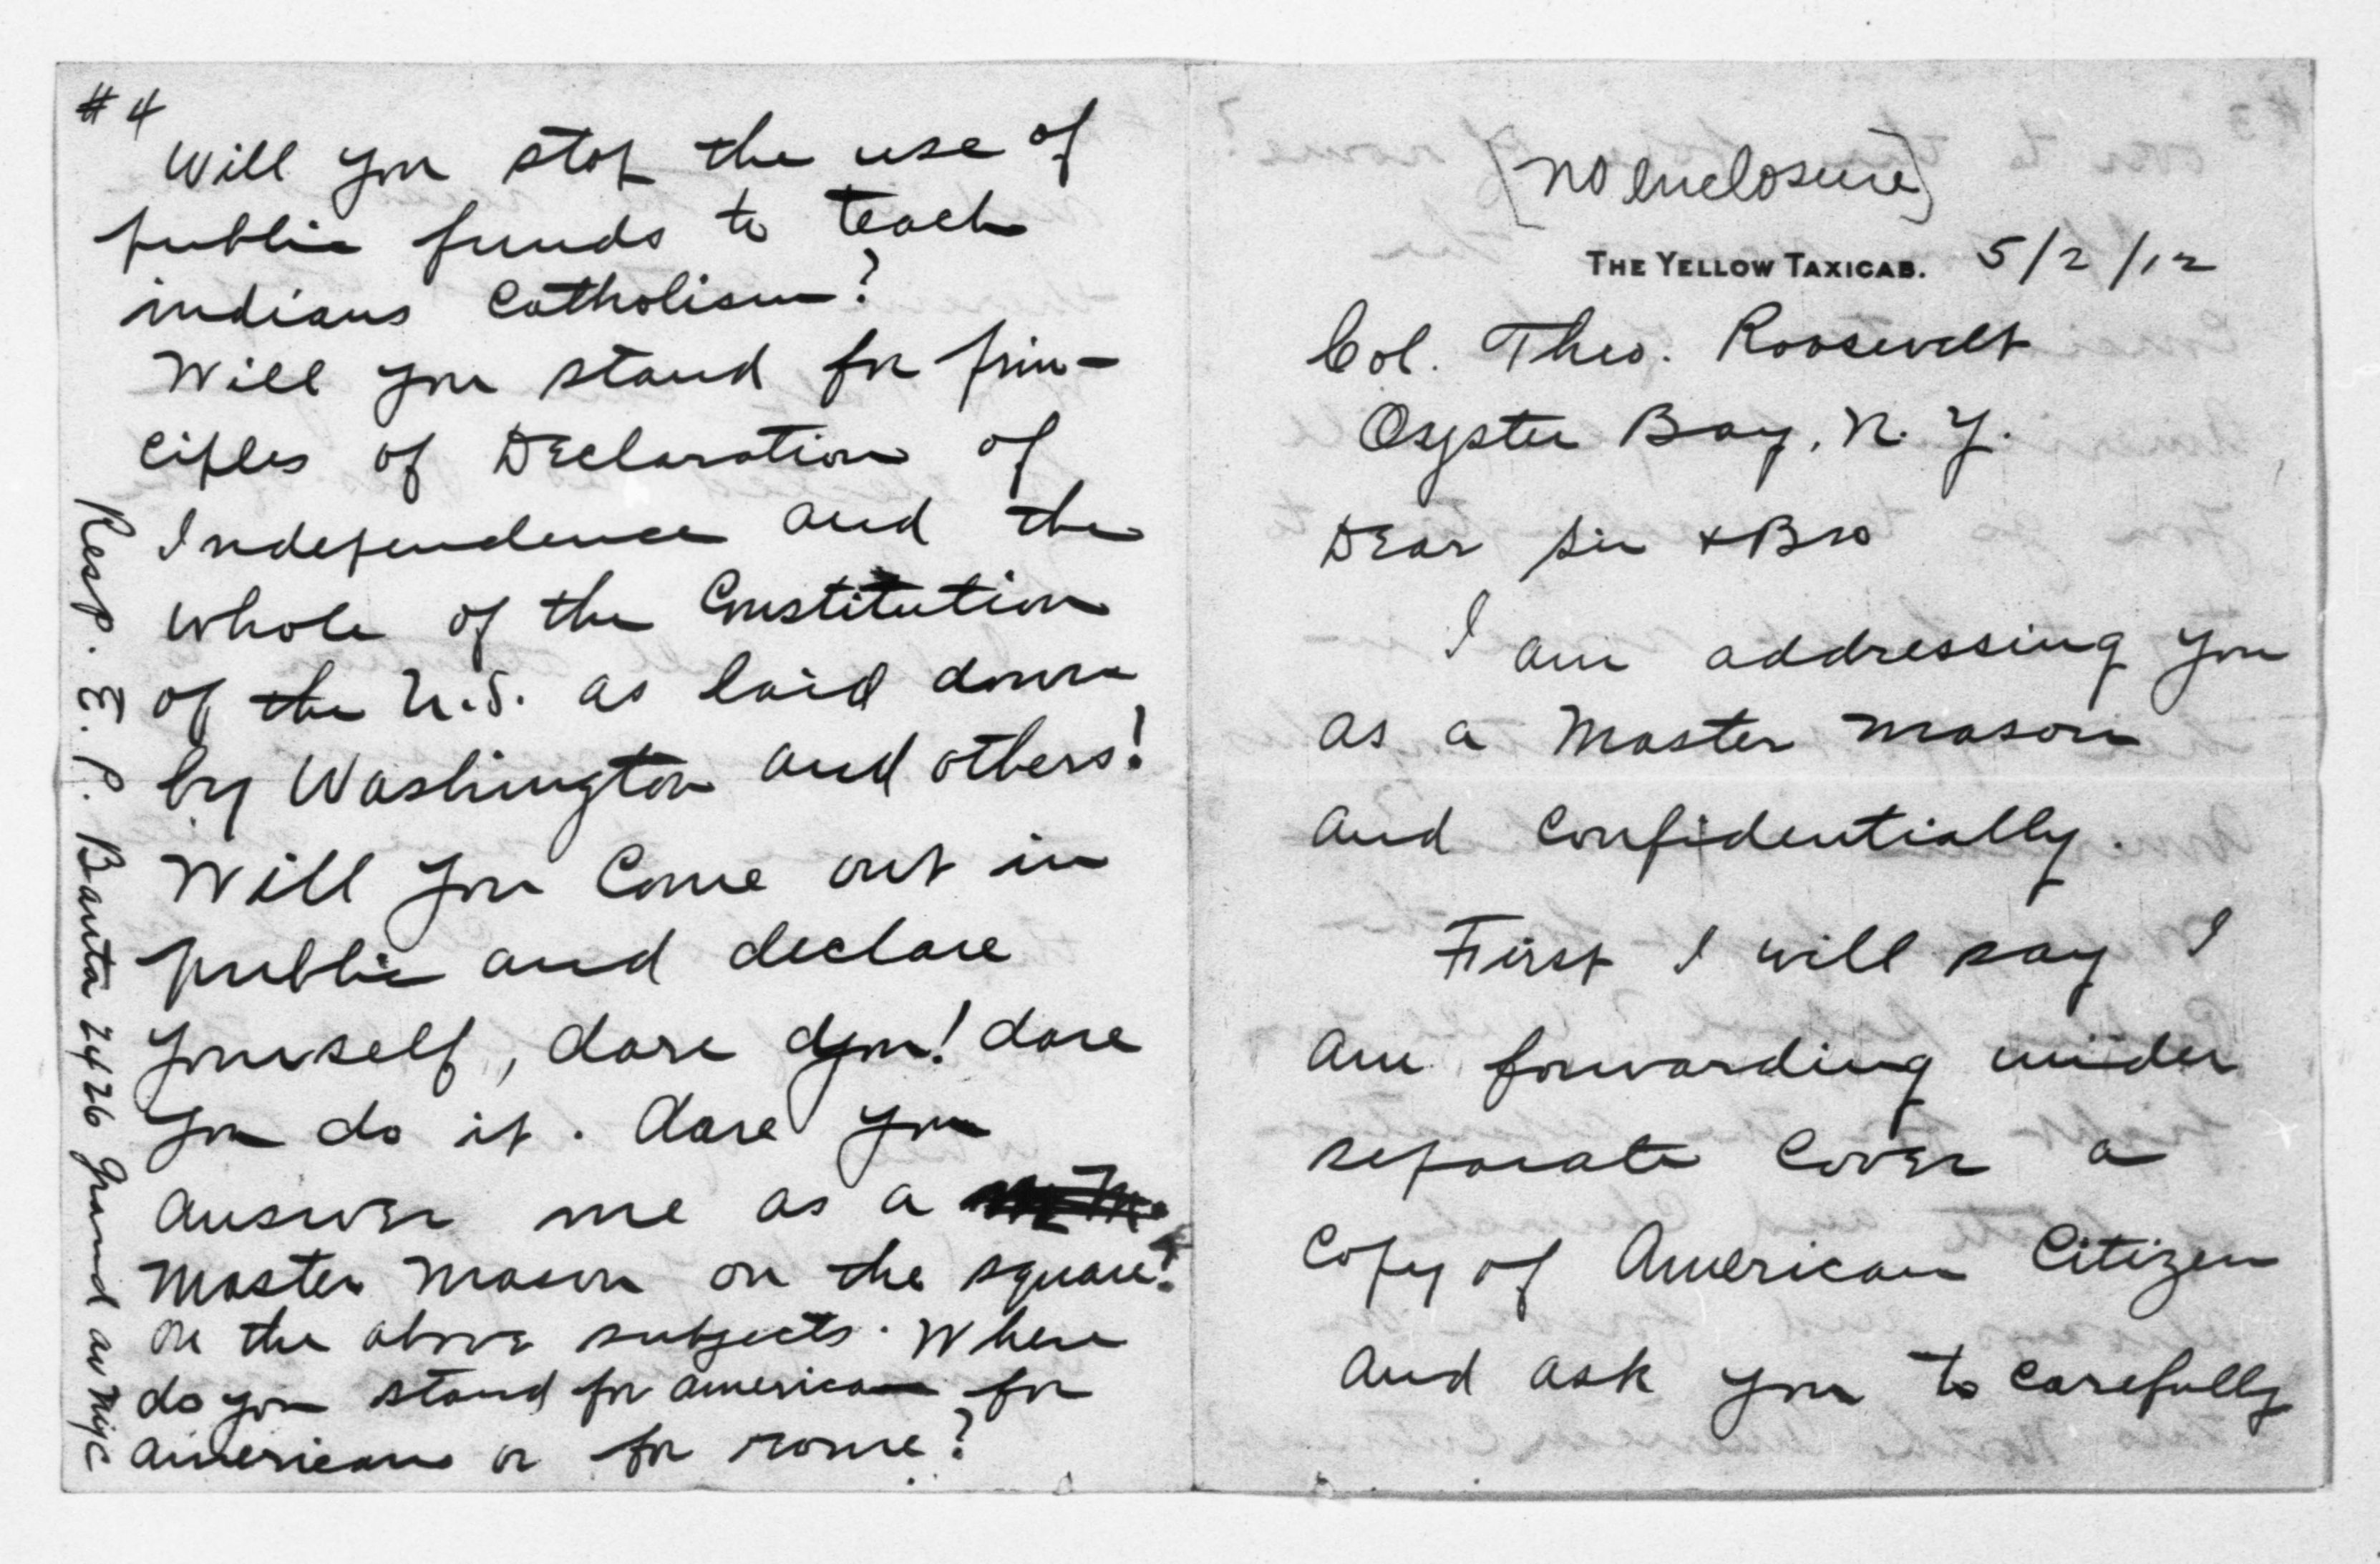 #4
Will you stop the use of
public funds to teach
indians Catholism?
Will you stand for prin-
ciples of Declaration of
Independence and the
whole of the Constitution
of the U.S. as laid down
by Washington and others!
Will you come out in
public and declare
yourself, dare you! dare
you do it. dare you
answer me as a
Master Mason on the square!
on the above subjects. Where
do you stand for american for
americans or for rome?
Resp. E. P. Banta 2426 Grand av NYC
[no enclosure]
THE YELLOW TAXICAB. 5/2/12
Col. Theo. Roosevelt
Oyster Bay, N. Y.
Dear Sir & Bro
I am addressing you
as a Master Mason
and confidentially.
First I will say I
am forwarding under
separate cover a
copy of American Citizen
and ask you to carefully